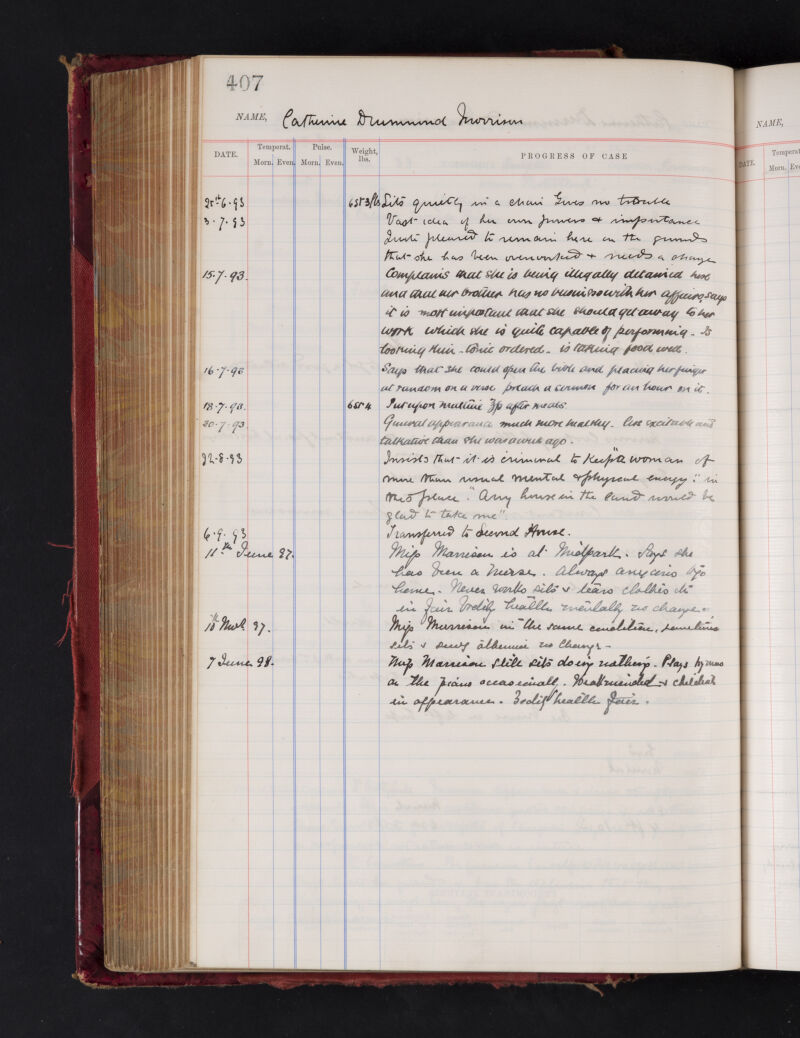 407
NAME, Catherine Drummond Morrison
DATE. Temperat. Pulse. Weight, lbs. PROGRESS OF CASE
Morn. Even. Morn. Even.
25th 6.93 Sits quietly in a chair Gives no trouble
3.7.93 Vast idea of her own powers & importance
Quite pleased to remain here on the grounds
that she has been overworked & needs a change
15.7.93. Complains that she is being illegally detained here
and that her brother has no business with her affairs, says
it is most important that she should get away to her
work which she is quite capable of performing. Is
looking thin. Tonic ordered. is taking food well.
16.7.93 Says that she could open the bible and placing her finger
at random on a verse preach a sermon for an hour on it.
18.7.93. Put upon after meals.
30.7.93 General appearance much more healthy. less excitable and
talkative than she was a week ago.
22.8.93 Insists that it is criminal to keep "a woman of
more than usual mental & physical energy" in
this place. "Any house in the land would be
glad to take me".
6.9.93 Transferred to Second House.
11th June 97. Miss Morrison is at Midpark. Says she
has been a Nurse. Always anxious to go
home. Never works sits & tears clothes &c
in fair bodily health mentally no change.
10th Novr. 97. Miss Morrison in the same condition, sometimes
sits & sews otherwise no change.
7 June 98. Miss Morrison still sits doing nothing. Plays hymns
on the piano occasionally. Weakminded & childish
in appearance. Bodily health fair.
NAME,
DATE. Temperat
Morn. Eve